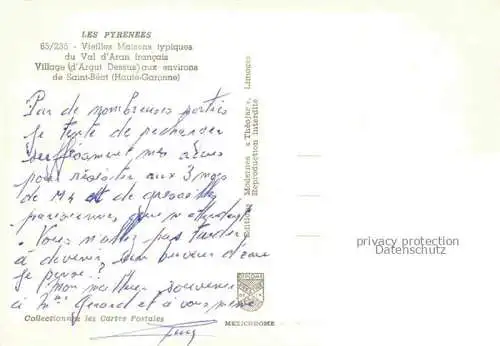 LES PYRENEES
65/235 - Vieilles Maisons typiques
du Val d'Aran français
Village (d'Argut Dessus) aux environs
de Saint-Béat (Haute-Garonne)
Par de nombreuses sorties
je tente de
suffisamment mes
pour résister aux 3 mois
de et de
parisiennes que
Vous n'allez pas tarder
à devenir un buveur d'eau
je pense ?
Mon meilleur souvenir
à Mme Gérard et à vous même
Collectionnez les Cartes Postales
MEXICHROME
Editions Modernes « Théojac », Limoges
Reproduction Interdite
privacy protection
Datenschutz